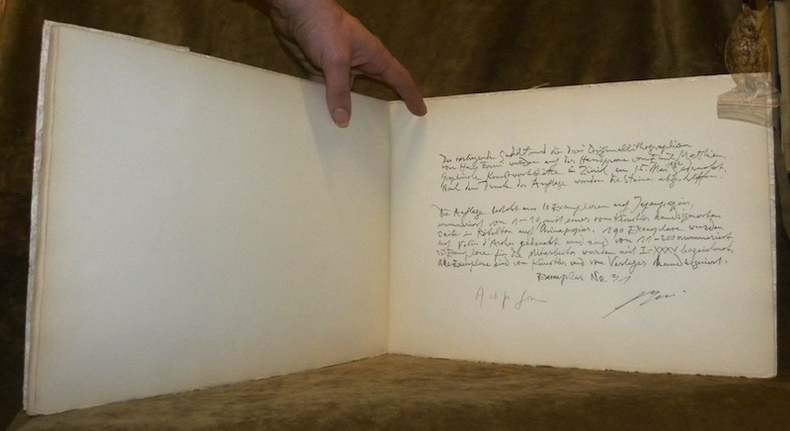 Das vorliegende Gedicht und die drei Originallithographien
von Hans Erni wurden auf der Handpresse von Emil Matthieu,
Graphische Kunstwerkstätte in Zürich am 15. Mai gedruckt.
Nach dem Druck der Auflage wurden die Steine abgeschliffen.
Die Auflage besteht aus 10 Exemplaren auf Japanpapier,
numeriert von 1–10, mit einer vom Künstler handsignierten
Suite in auf Chinapapier. 190 Exemplare wurden
auf Velin d'Arches gedruckt und sind von 11–200 numeriert.
Exemplare für die Mitarbeiter wurden mit I–XXXV bezeichnet.
Alle Exemplare sind vom Künstler und vom Verleger handsigniert.
Exemplar No. 31